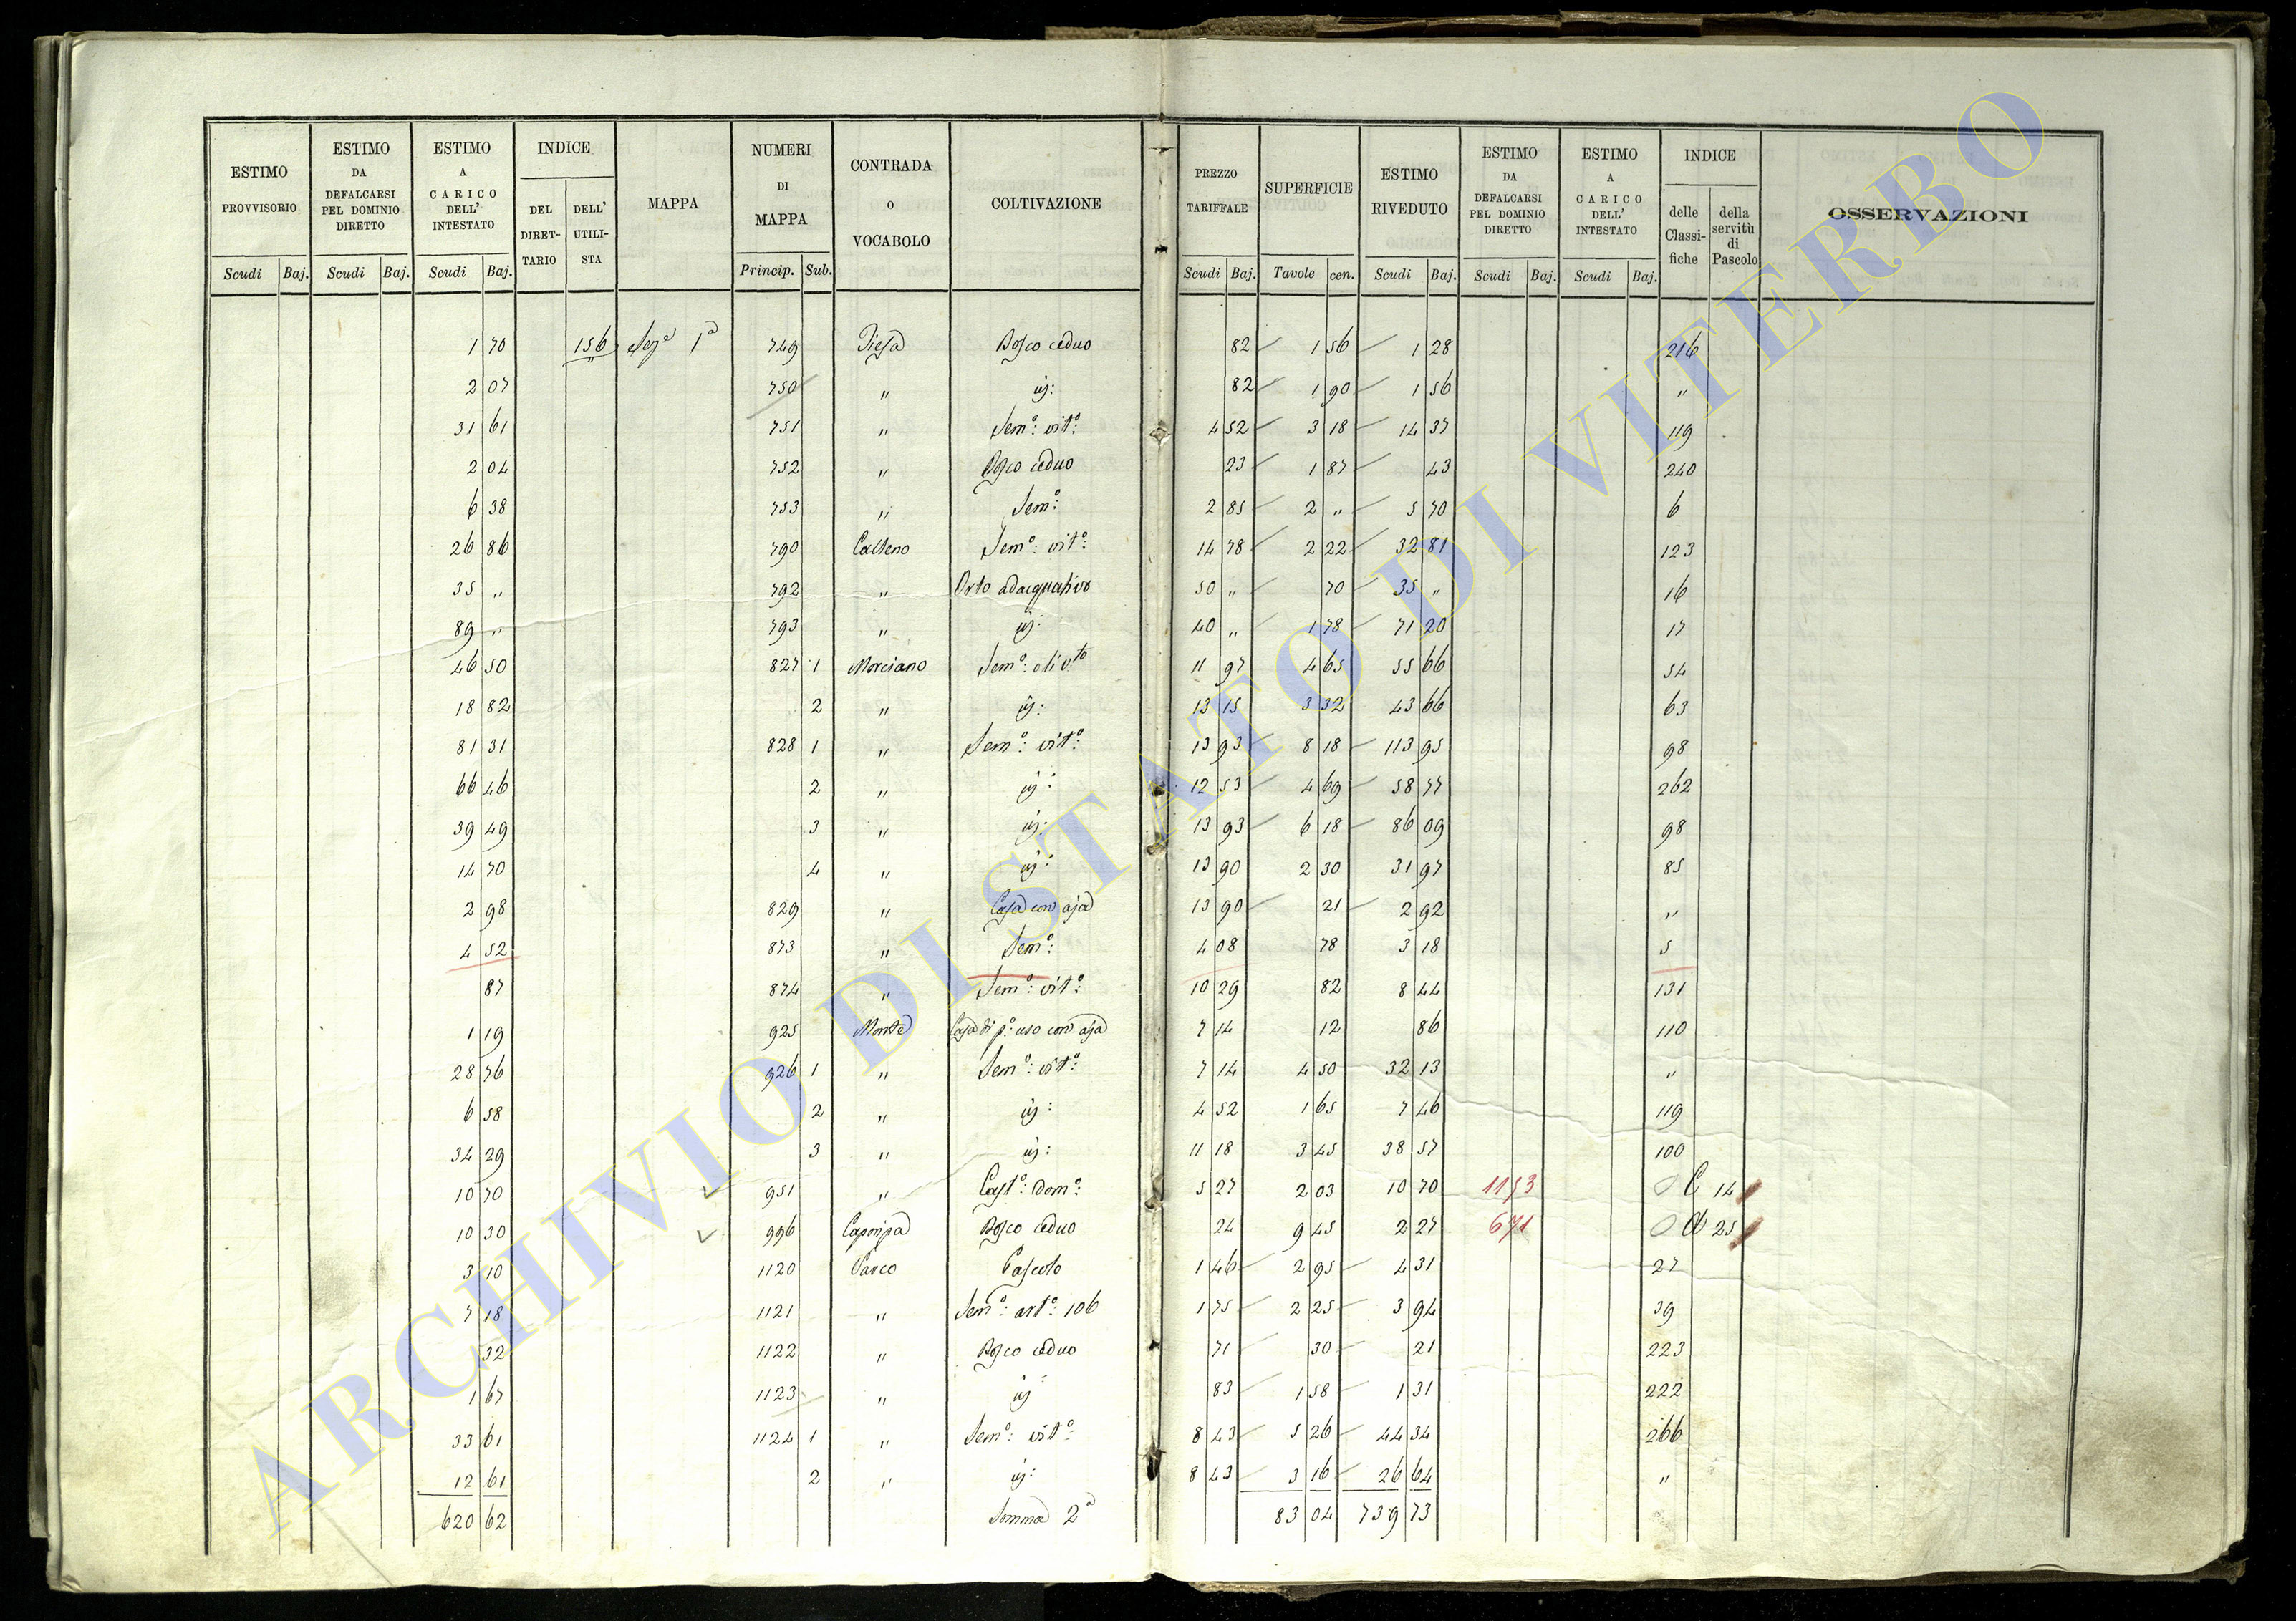 ESTIMO PROVVISORIO
ESTIMO DA DEFALCARSI PEL DOMINIO DIRETTO
ESTIMO A CARICO DELL' INTESTATO
INDICE
DEL DIRET-TARIO
DELL' UTILI-STA
MAPPA
NUMERI DI MAPPA
CONTRADA O VOCABOLO
COLTIVAZIONE
PREZZO TARIFFALE
SUPERFICIE
ESTIMO RIVEDUTO
ESTIMO DA DEFALCARSI PEL DOMINIO DIRETTO
ESTIMO A CARICO DELL' INTESTATO
INDICE
delle Classi-fiche
della servitù di Pascolo
OSSERVAZIONI
Scudi Baj. Scudi Baj. Scudi Baj. Princip. Sub. Scudi Baj. Tavole cen. Scudi Baj. Scudi Baj. Scudi Baj.
1 70 156 Sezᵃ 1ª 749 Bosco ceduo 82 1 56 1 28 216
2 07 750 " id: 82 1 90 1 56 "
31 61 751 " Semº: vitº: 4 52 3 18 14 37 119
2 04 752 " Bosco ceduo 23 1 87 43 240
6 38 753 " Semº: 2 85 2 " 5 70 6
26 86 790 Calleno Semº: vitº: 14 78 2 22 32 81 123
35 " 792 " Orto adacquativo 50 " 70 35 " 16
89 " 793 " id: 40 " 1 78 71 20 17
46 50 827 1 Morciano Semº: olivto 11 97 4 65 55 66 54
18 82 2 " id: 13 15 3 32 43 66 63
81 31 828 1 " Semº: vitº: 13 93 8 18 113 95 98
66 46 2 " id: 12 53 4 69 58 77 262
39 49 3 " id: 13 93 6 18 86 09 98
14 70 4 " id: 13 90 2 30 31 97 85
2 98 829 " Casa con aja 13 90 21 2 92 "
4 52 873 " Semº: 4 08 78 3 18 5
87 874 " Semº: vitº: 10 29 82 8 44 131
1 19 925 Monte Casa di pº: uso con aja 7 14 12 86 110
28 76 926 1 " Semº: vitº: 7 14 4 50 32 13 "
6 58 2 " id: 4 52 1 65 7 46 119
34 29 3 " id: 11 18 3 45 38 57 100
10 70 951 " Castº: Domº: 5 27 2 03 10 70 C 14
10 30 996 Caporipa Bosco ceduo 24 9 45 2 27 25
3 10 1120 Varco Pascolo 1 46 2 95 4 31 27
7 18 1121 " Semº: artº: 106 1 75 2 25 3 94 39
32 1122 " Bosco ceduo 71 30 21 223
1 67 1123 " id 83 1 58 1 31 222
33 61 1124 1 " Semº: vitº: 8 43 5 26 44 34 266
12 61 2 " id: 8 43 3 16 26 64 "
620 62 Somma 2ª 83 04 739 73
ARCHIVIO DI STATO DI VITERBO